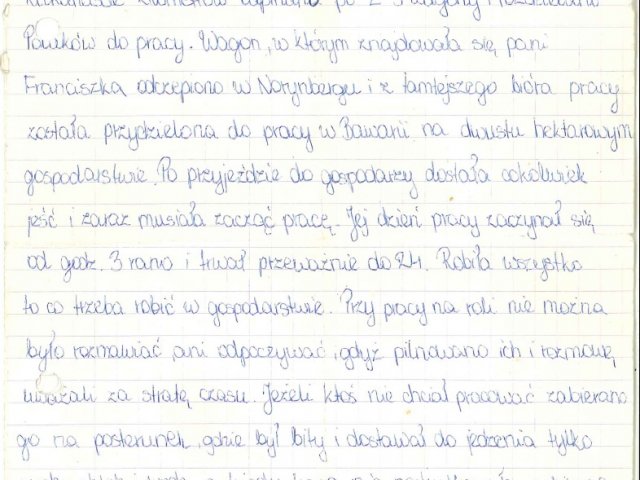 kilkanaście kilometrów odpinano po 2-3 wagony i rozdzielano
Polaków do pracy. Wagon, w którym znajdowała się pani
Franciszka odczepiono w Norynbergu i z tamtejszego bióra pracy
została przydzielona do pracy w Bawarii na dwustu hektarowym
gospodarstwie. Po przyjeździe do gospodarzy dostała cokolwiek
jeść i zaraz musiała zacząć pracę. Jej dzień pracy zaczynał się
od godz. 3 rano i trwał przeważnie do 24. Robiła wszystko
to co trzeba robić w gospodarstwie. Przy pracy na roli nie można
było rozmawiać ani odpoczywać, gdyż pilnowano ich i rozmowę
uważali za stratę czasu. Jeżeli ktoś nie chciał pracować zabierano
go na posterunek, gdzie był bity i dostawał do jedzenia tylko